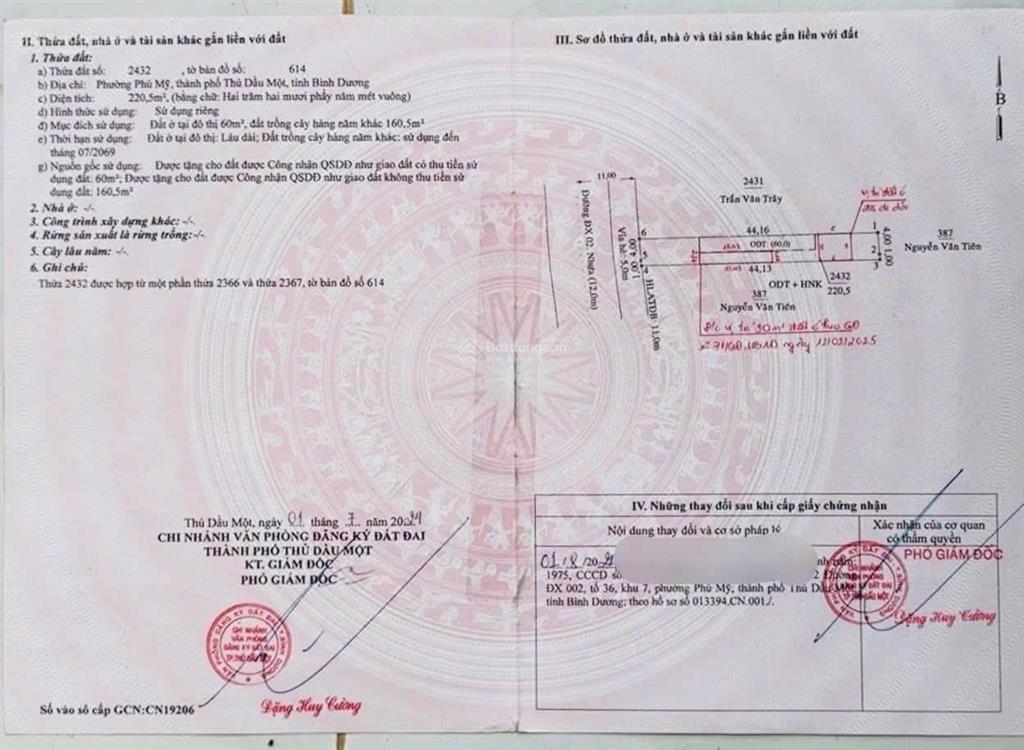 II. Thửa đất, nhà ở và tài sản khác gắn liền với đất
1. Thửa đất:
a) Thửa đất số: 2432 , tờ bản đồ số: 614
b) Địa chỉ: Phường Phú Mỹ, thành phố Thủ Dầu Một, tỉnh Bình Dương
c) Diện tích: 220,5m², (bằng chữ: Hai trăm hai mươi phẩy năm mét vuông)
d) Hình thức sử dụng: Sử dụng riêng
đ) Mục đích sử dụng: Đất ở tại đô thị 60m², đất trồng cây hàng năm khác 160,5m²
e) Thời hạn sử dụng: Đất ở tại đô thị: Lâu dài; Đất trồng cây hàng năm khác: sử dụng đến
tháng 07/2069
g) Nguồn gốc sử dụng: Được tặng cho đất được Công nhận QSDĐ như giao đất có thu tiền sử
dụng đất: 60m²; Được tặng cho đất được Công nhận QSDĐ như giao đất không thu tiền sử
dụng đất: 160,5m²
2. Nhà ở: -/-
3. Công trình xây dựng khác: -/-
4. Rừng sản xuất là rừng trồng:-/-
5. Cây lâu năm: -/-
6. Ghi chú:
Thửa 2432 được hợp từ một phần thửa 2366 và thửa 2367, tờ bản đồ số 614
Thủ Dầu Một, ngày 01 tháng 7 năm 2024
CHI NHÁNH VĂN PHÒNG ĐĂNG KÝ ĐẤT ĐAI
THÀNH PHỐ THỦ DẦU MỘT
KT. GIÁM ĐỐC
PHÓ GIÁM ĐỐC
Đặng Huy Cường
Số vào sổ cấp GCN:CN19206
III. Sơ đồ thửa đất, nhà ở và tài sản khác gắn liền với đất
B
11,00
2431
Trần Văn Trây
Đường ĐX 02: Nhựa (12,0m)
Vỉa hè: 5,0m
HLATĐB: 11,0m
6
5
4,00
1,00
44,16
ODT: (60,0)
44,13
1
2
3
4,00
1,00
387
Nguyễn Văn Tiên
2432
220,5
ODT + HNK
387
Nguyễn Văn Tiên
ngày 12/02/2025
Batdongsan
IV. Những thay đổi sau khi cấp giấy chứng nhận
Nội dung thay đổi và cơ sở pháp lý
Xác nhận của cơ quan
có thẩm quyền
01/8/20
PHÓ GIÁM ĐỐC
1975, CCCD số
ĐX 002, tổ 36, khu 7, phường Phú Mỹ, thành phố Thủ Dầu Một,
tỉnh Bình Dương; theo hồ sơ số 013394.CN.001./.
Đặng Huy Cường